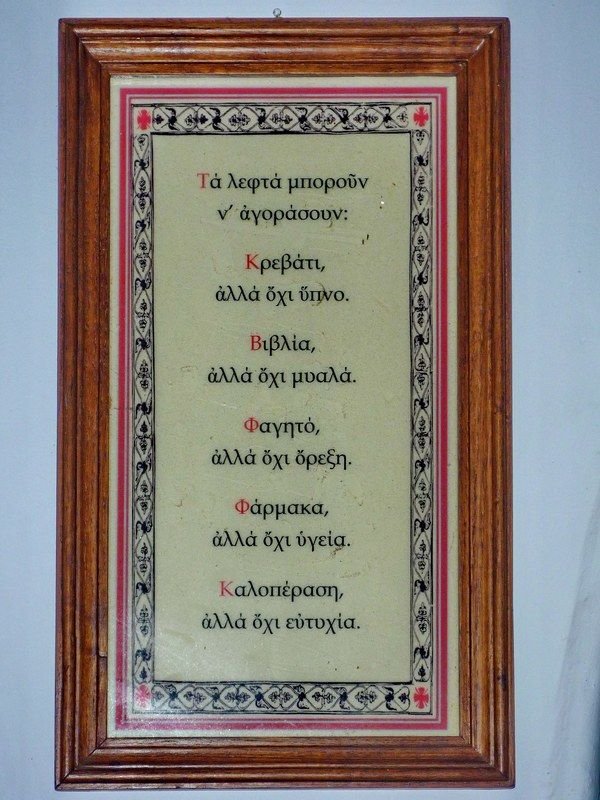 Τά λεφτά μποροῦν
ν’ ἀγοράσουν:
Κρεβάτι,
ἀλλά ὄχι ὕπνο.
Βιβλία,
ἀλλά ὄχι μυαλά.
Φαγητό,
ἀλλά ὄχι ὄρεξη.
Φάρμακα,
ἀλλά ὄχι ὑγεία.
Καλοπέραση,
ἀλλά ὄχι εὐτυχία.